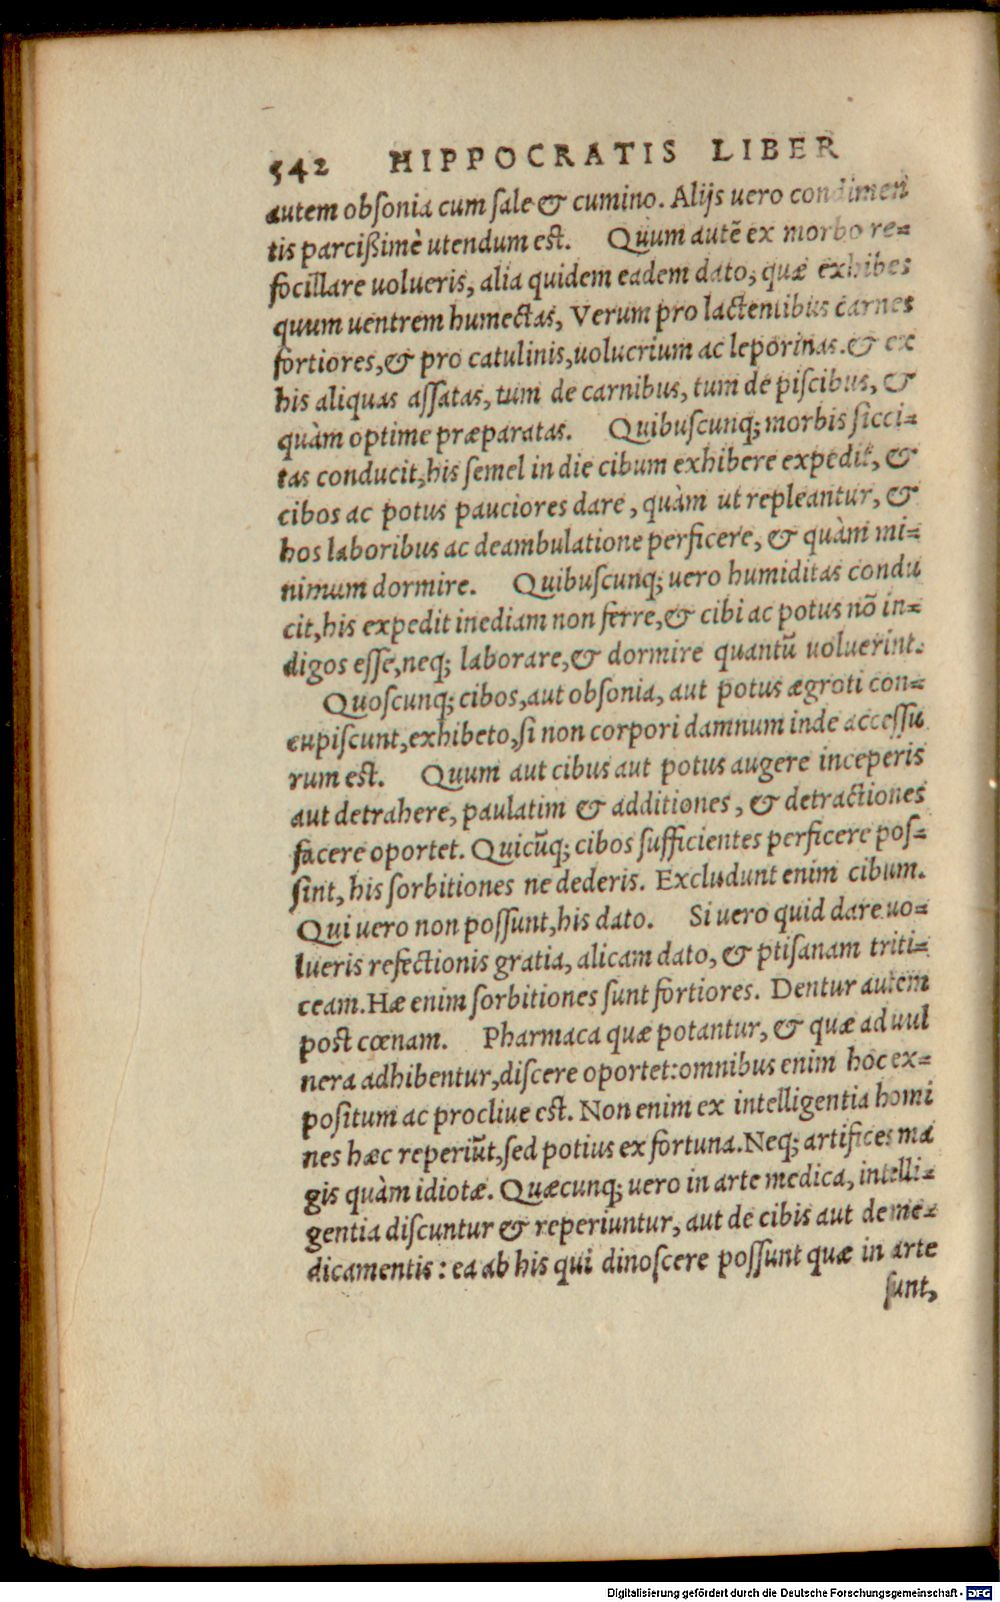 542 HIPPOCRATIS LIBER
autem obſonia cum ſale & cumino. Alijs uero condimen
tis parcißimè utendum eſt. Quum autē ex morbo re=
focillare uolueris, alia quidem eadem dato, quæ exhibes
quum uentrem humectas, Verum pro lactentibus carnes
fortiores, & pro catulinis, uolucrium ac leporinas. & ex
his aliquas aſſatas, tum de carnibus, tum de piſcibus, &
quàm optime præparatas. Quibuſcunq; morbis ſicci=
tas conducit, his ſemel in die cibum exhibere expedit, &
cibos ac potus pauciores dare, quàm ut repleantur, &
hos laboribus ac deambulatione perficere, & quàm mi=
nimum dormire. Quibuſcunq; uero humiditas condu
cit, his expedit inediam non ferre, & cibi ac potus nō in=
digos eſſe, neq; laborare, & dormire quantū uoluerint.
Quoſcunq; cibos, aut obſonia, aut potus ægroti con=
cupiſcunt, exhibeto, ſi non corpori damnum inde acceſſu
rum eſt. Quum aut cibus aut potus augere inceperis
aut detrahere, paulatim & additiones, & detractiones
facere oportet. Quicūq; cibos ſufficientes perficere poſ=
ſint, his ſorbitiones ne dederis. Excludunt enim cibum.
Qui uero non poſſunt, his dato. Si uero quid dare uo=
lueris refectionis gratia, alicam dato, & ptiſanam triti=
ceam. Hæ enim ſorbitiones ſunt fortiores. Dentur autem
poſt cœnam. Pharmaca quæ potantur, & quæ ad uul
nera adhibentur, diſcere oportet: omnibus enim hoc ex=
poſitum ac procliue eſt. Non enim ex intelligentia homi
nes hæc reperiūt, ſed potius ex fortuna. Neq; artifices ma
gis quàm idiotæ. Quæcunq; uero in arte medica, intelli=
gentia diſcuntur & reperiuntur, aut de cibis aut de me=
dicamentis: ea ab his qui dinoſcere poſſunt quæ in arte
ſunt,
Digitalisierung gefördert durch die Deutsche Forschungsgemeinschaft - DFG